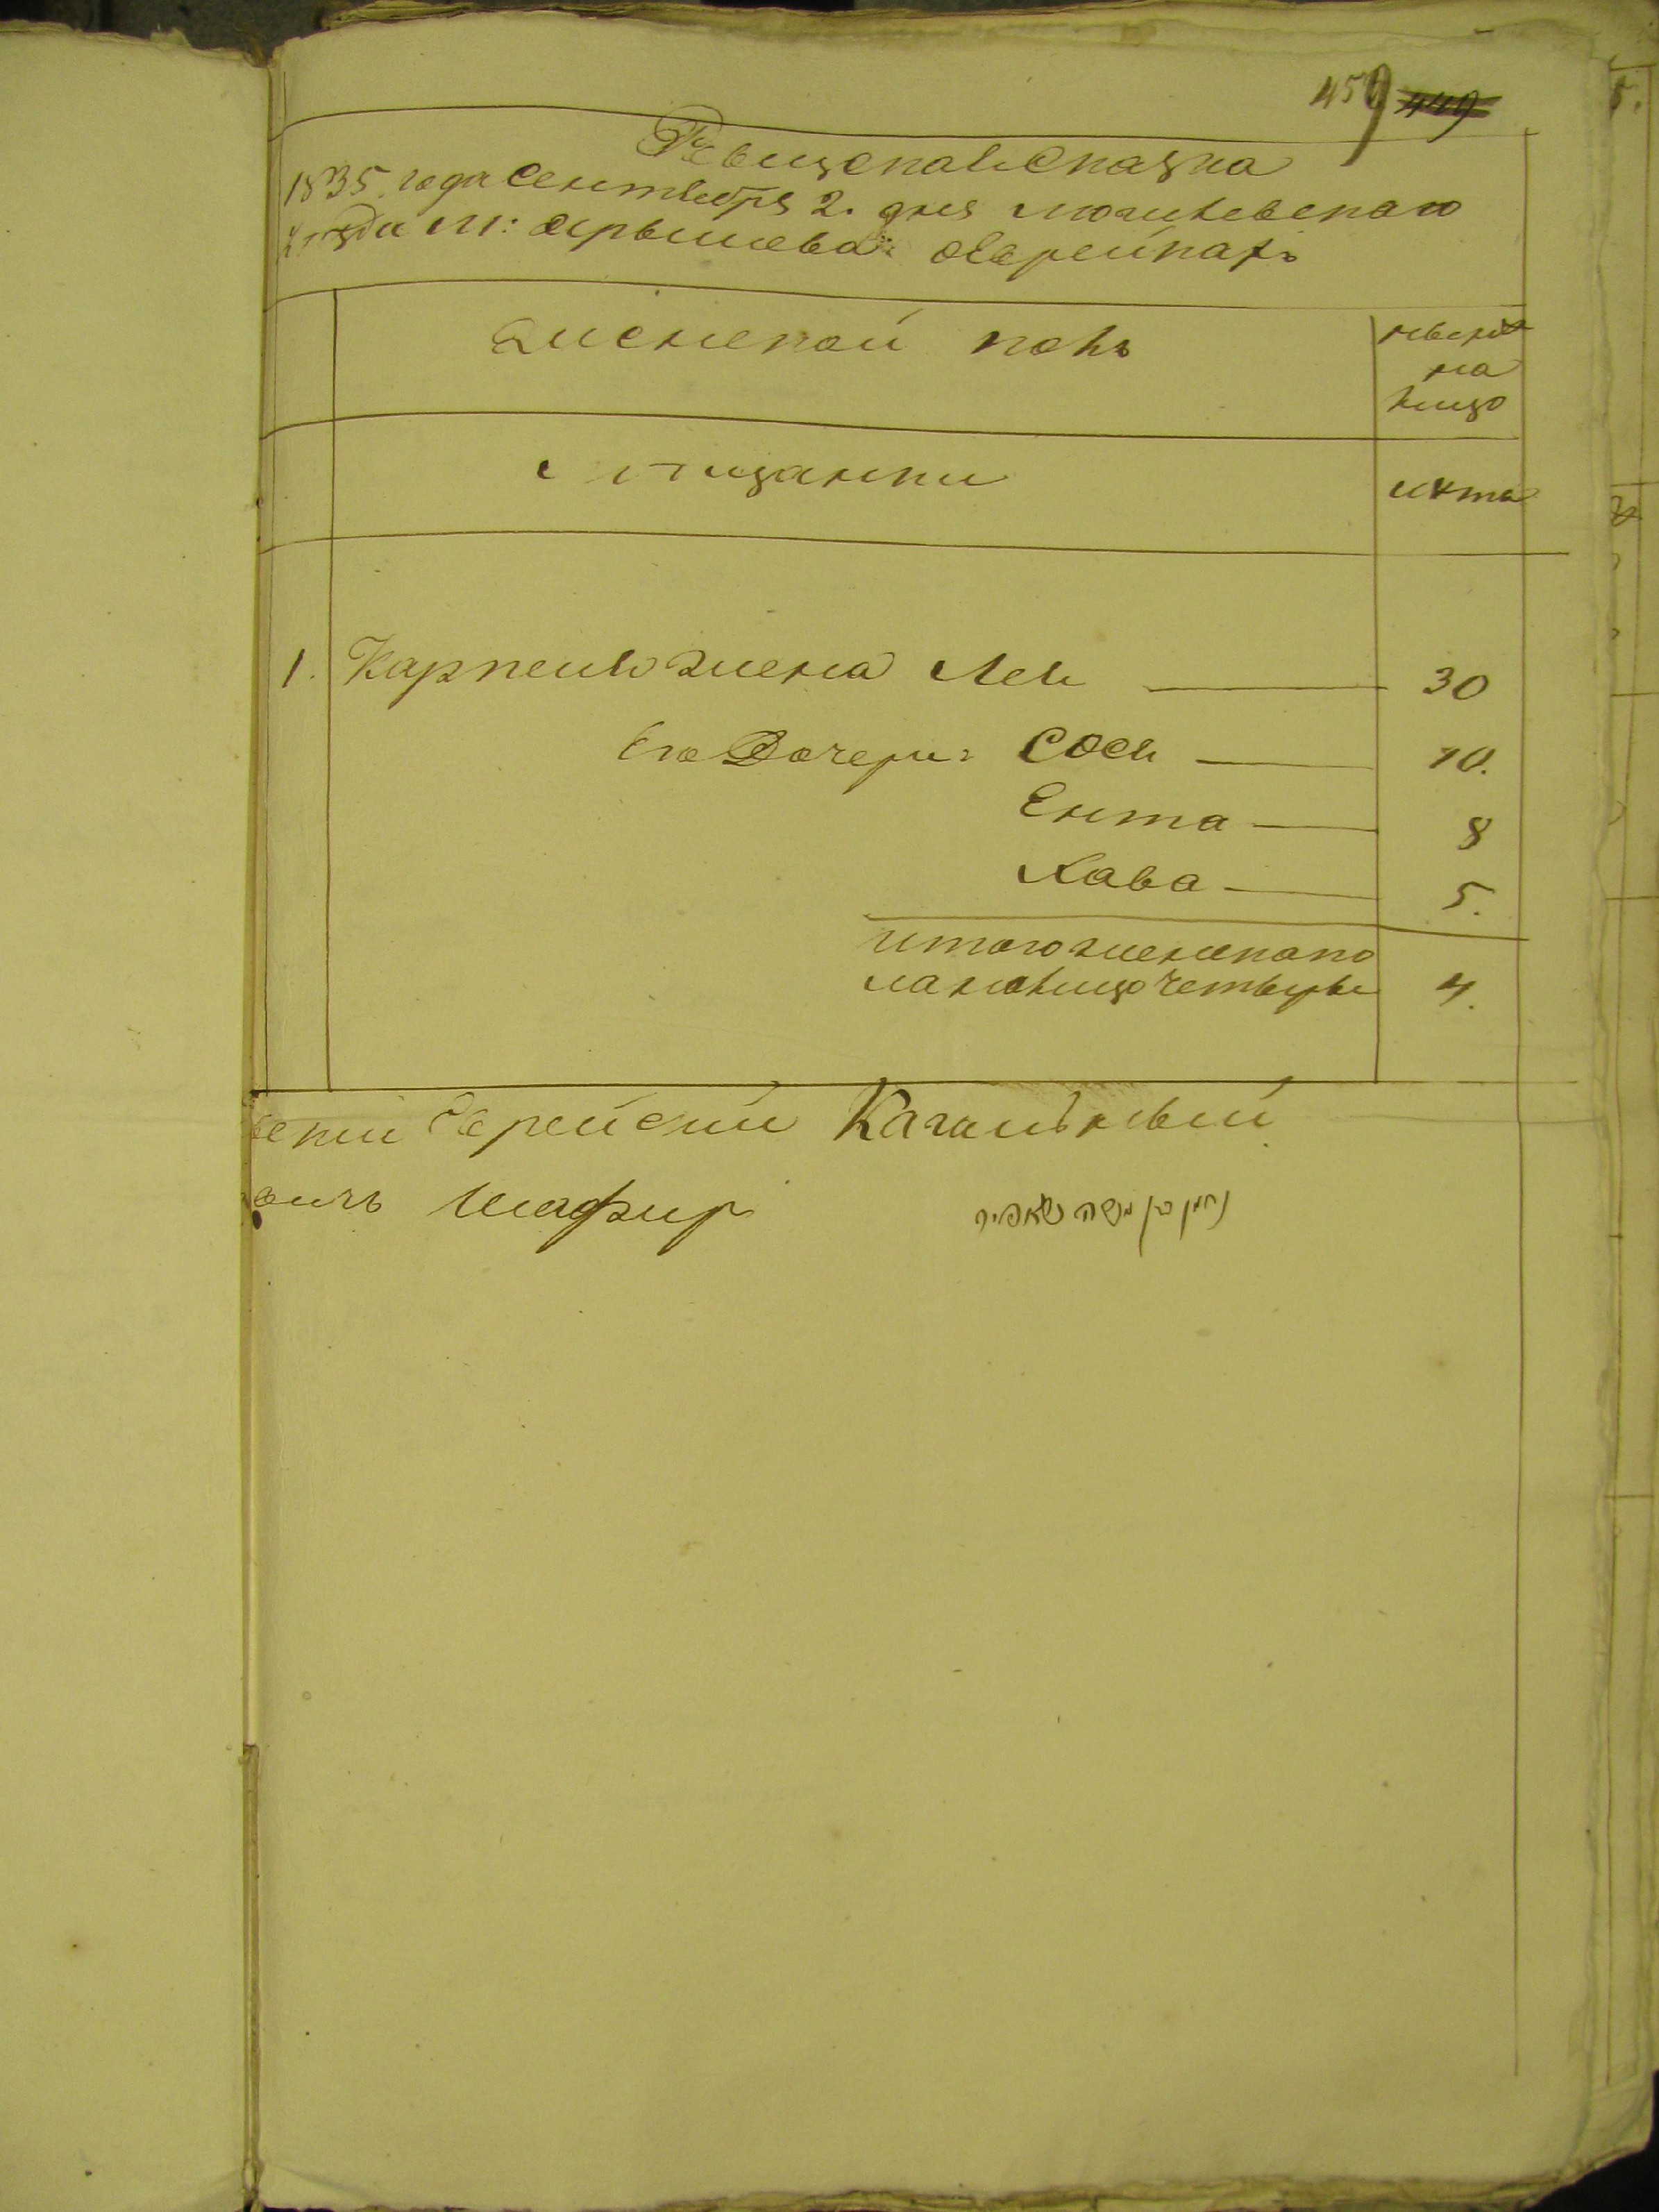 459 449
Ревизская Сказка
1835. года Сентября 2. дня Могилевскаго
уезда М: Ярышева Еврейкахъ
Женской полъ
ныне
на
лицо
Мещанки
лета
1. Карпеля жена Лея 30
Его Дочери: Сося 10.
Ента 8
Хава 5.
итого женскаго по
ла на лицо четыре 4.
вский Еврейский Кагальный
вичъ Шафир
נחמן בן משה שאפיר